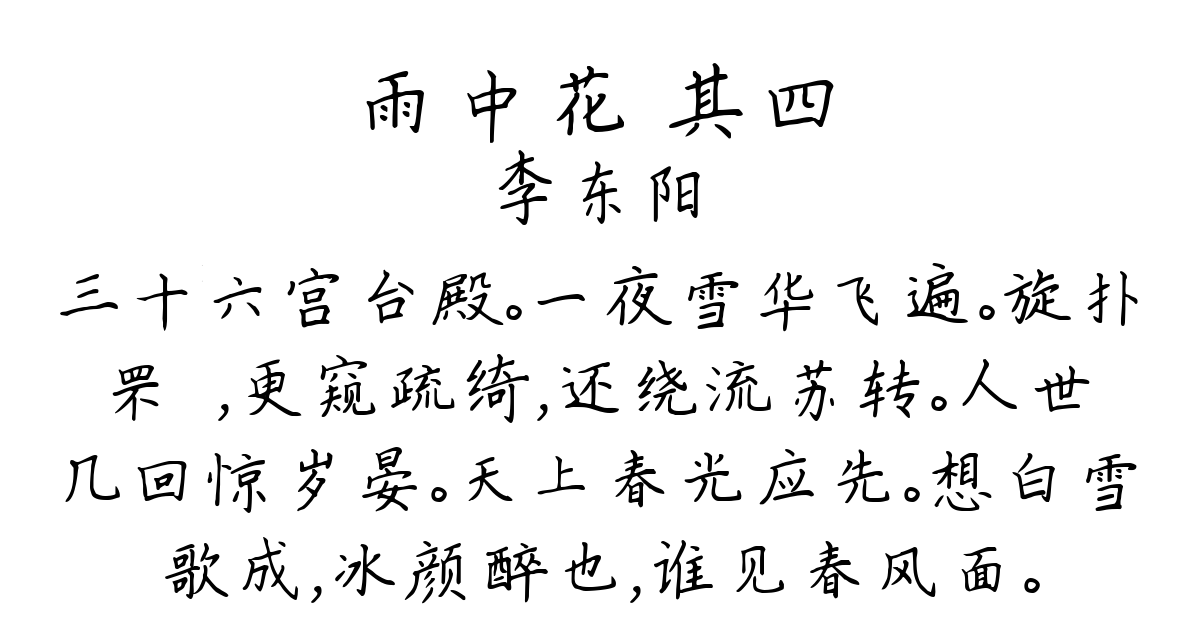 雨中花 其四
李东阳
三十六宫台殿。一夜雪华飞遍。旋扑
罘 ,更窥疏绮,还绕流苏转。人世
几回惊岁晏。天上春光应先。想白雪
歌成,冰颜醉也,谁见春风面。